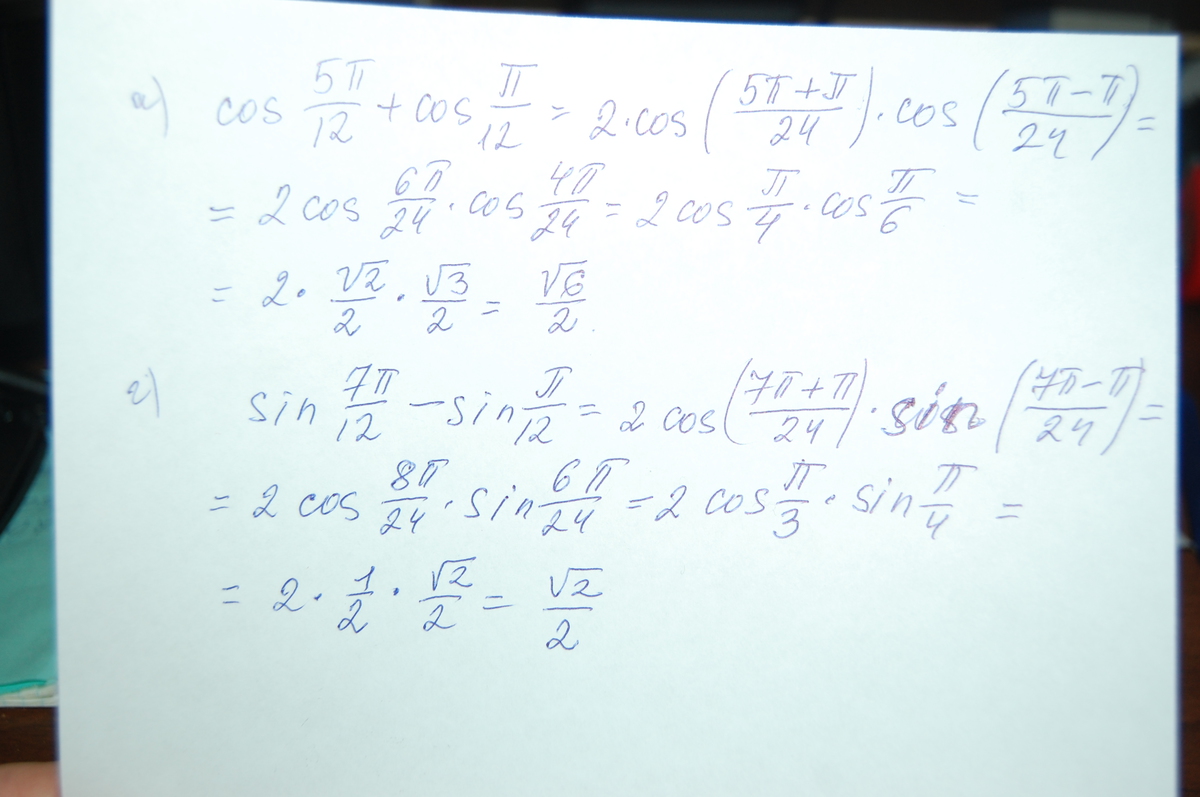 а) cos 5π/12 + cos π/12 = 2·cos((5π+π)/24)·cos((5π−π)/24) =
= 2 cos 6π/24 · cos 4π/24 = 2 cos π/4 · cos π/6 =
= 2 · √2/2 · √3/2 = √6/2.
г) sin 7π/12 − sin π/12 = 2 cos((7π+π)/24)·sin((7π−π)/24) =
= 2 cos 8π/24 · sin 6π/24 = 2 cos π/3 · sin π/4 =
= 2 · 1/2 · √2/2 = √2/2